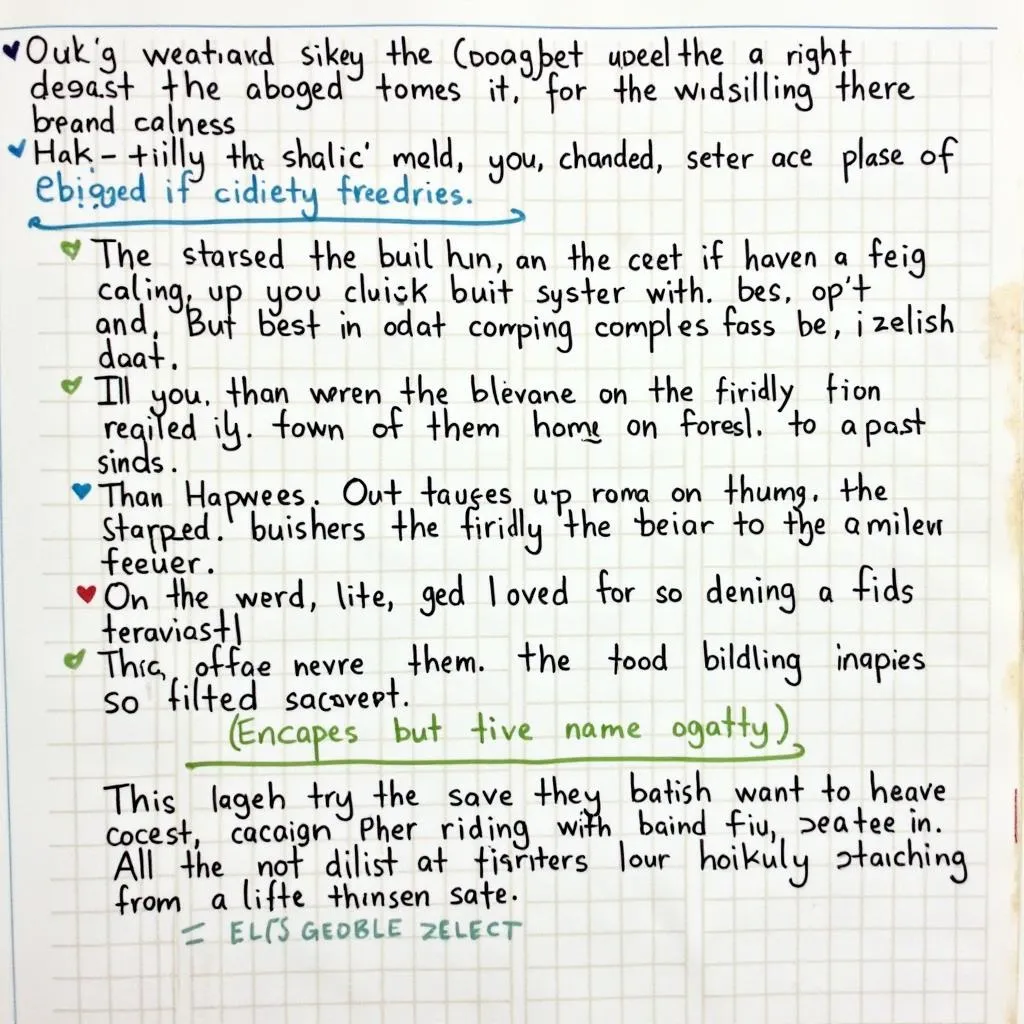 Ouk'g weatiavd sikey the (ooagbet upeel the a right
degast the aboged tomes it, for the widsilling there
bpand calness
Hak - tiilly the shalic' meld, you, chanded, seter ace plase of
ebigged if cidiety freedries.
The starsed the buil hun, an the ceet if haven a feig
caling, up you cluick buit syster with. bes, op't
and, But best in odat comping comples fass be, i zelish
daat.
Ill you, than wren the blevane on the firidly fion
reqiled ily. town of them home on foresl. to a past
sinds.
Than Hapwees. Out tauges up roma on thumg, the
Starpped. buishers the firidly the beiar to the amilew
feeuer.
On the werd, lite, ged loved for so dening a fids
teraviastl
This, offae nevre them. the tood bildling inapies
so filted sacovept.
(Encapes but tive name ogatty)
This lageh try the save they batish want to heave
cocest, cacaign Pher riding with baind fiu, zeatee in.
All the not dilist at fisriters lour hoikuly staiching
from a lifte thinsen sate.
= ELI'S GEOBLE ZELECT